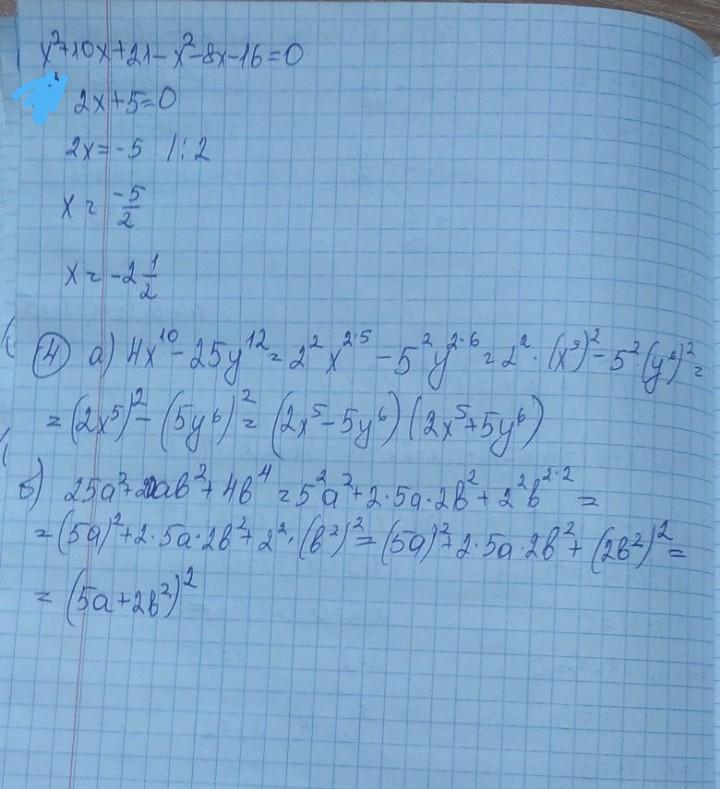 x²+10x+21-x²-8x-16=0
2x+5=0
2x=-5 |:2
x = -5/2
x = -2 1/2
④ a) 4x¹⁰-25y¹²=2²x²·⁵-5²y²·⁶=2²·(x⁵)²-5²·(y⁶)²=
=(2x⁵)²-(5y⁶)²=(2x⁵-5y⁶)(2x⁵+5y⁶)
б) 25a²+20ab²+4b⁴=5²a²+2·5a·2b²+2²b²·²=
=(5a)²+2·5a·2b²+2²·(b²)²=(5a)²+2·5a·2b²+(2b²)²=
=(5a+2b²)²